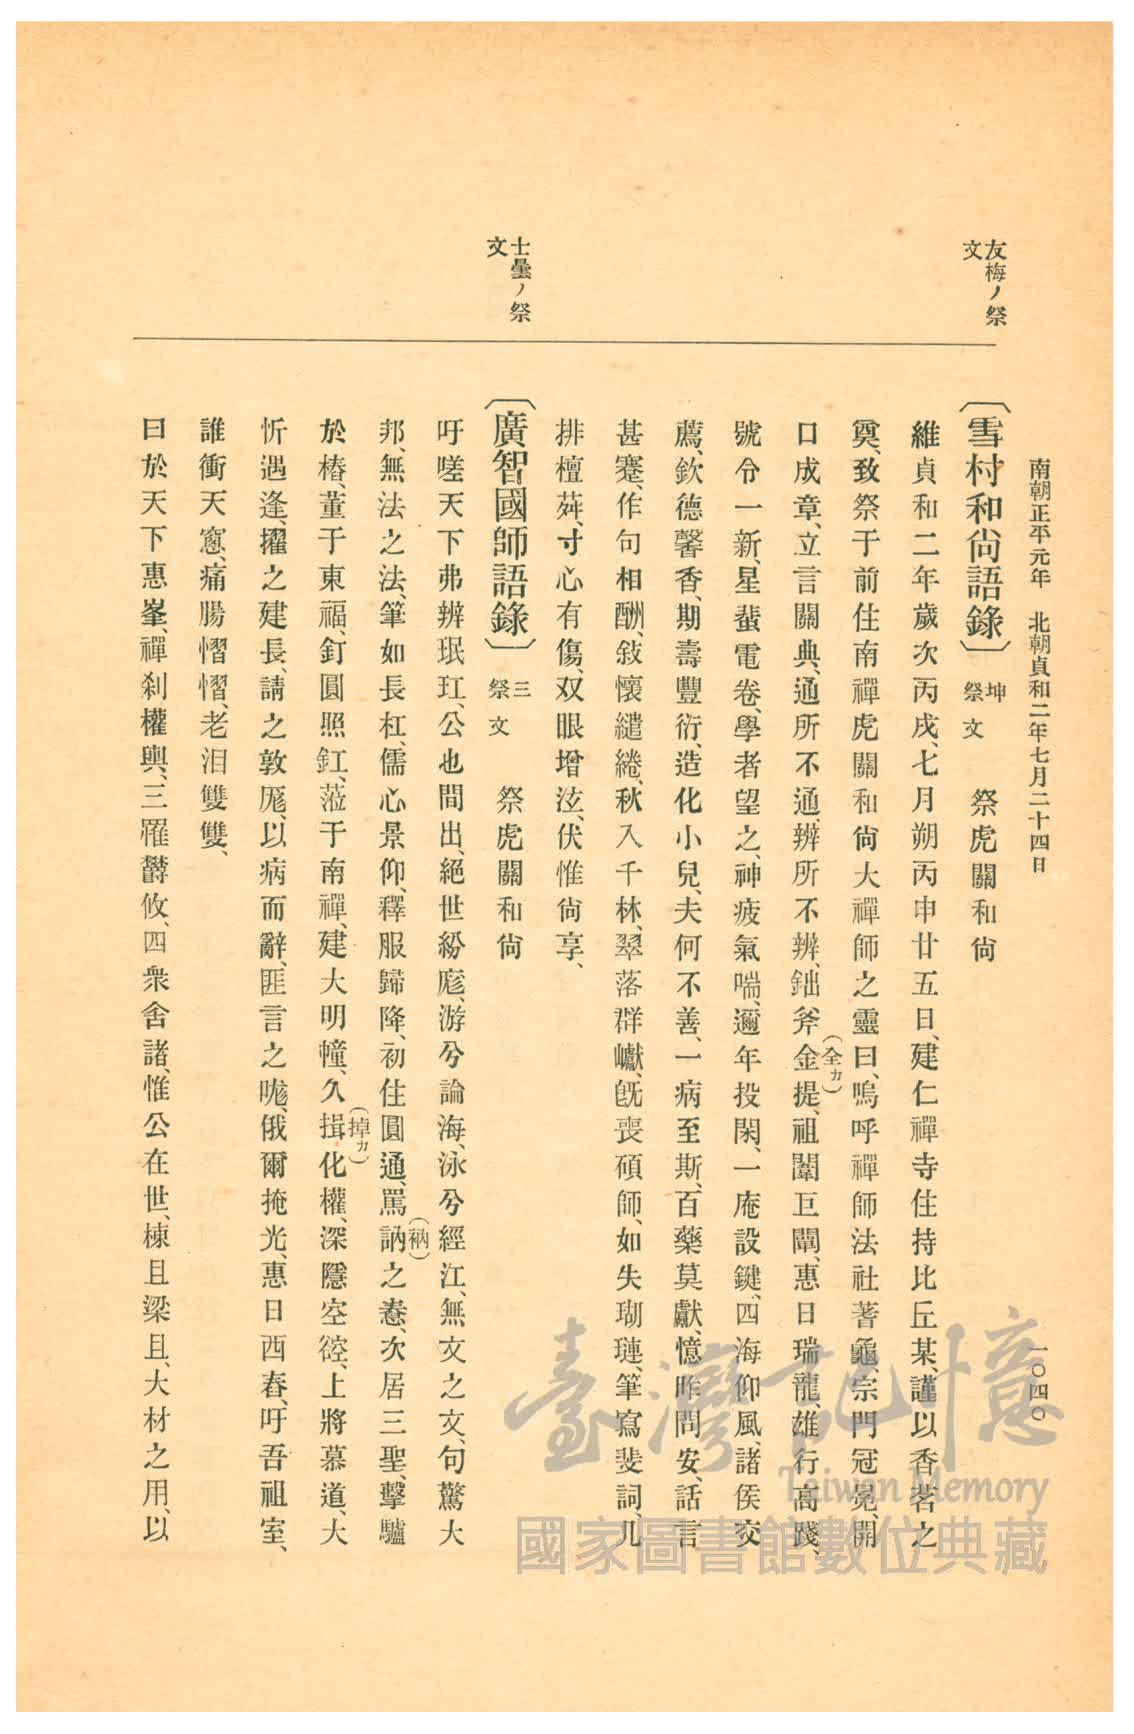 南朝正平元年　北朝貞和二年七月二十四日　一〇四〇
友梅ノ祭
文
〔雪村和尙語錄〕坤祭文　祭虎關和尙
維貞和二年歲次丙戌、七月朔丙申廿五日、建仁禪寺住持比丘某、謹以香茗之
奠、致祭于前住南禪虎關和尙大禪師之靈曰、嗚呼禪師法社蓍龜、宗門冠冕、開
口成章、立言關典、通所不通、辨所不辨、鈯斧金(全カ)提、祖闈巨闡、惠日瑞龍、雄行高踐、
號令一新、星蜚電卷、學者望之、神疲氣喘、邇年投閑、一庵設鍵、四海仰風、諸侯交
薦、欽德馨香、期壽豐衍、造化小兒、夫何不善、一病至斯、百藥莫獻、憶昨問安、話言
甚蹇、作句相酬、敍懷繾綣、秋入千林、翠落群巘、旣喪碩師、如失瑚璉、筆寫斐詞、几
排檀荈、寸心有傷、双眼增泫、伏惟尙享、
士曇ノ祭
文
〔廣智國師語錄〕三祭文　祭虎關和尙
吁嗟天下弗辨珉玒、公也間出、絕世紛庬、游兮論海、泳兮經江、無文之文、句驚大
邦、無法之法、筆如長杠、儒心景仰、釋服歸降、初住圓通、罵訥(衲)之惷、次居三聖、擊驢
於樁、董于東福、釘圓照釭、蒞于南禪、建大明幢、久揖(掉カ)化權、深隱空谾、上將慕道、大
忻遇逢、擢之建長、請之敦厖、以病而辭、匪言之哤、俄爾掩光、惠日西舂、吁吾祖室、
誰衝天窻、痛腸慴慴、老泪雙雙、
曰於天下惠峯、禪刹權輿、三罹欝攸、四衆舍諸、惟公在世、棟且梁且、大材之用、以
臺灣記憶
Taiwan Memory
國家圖書館數位典藏